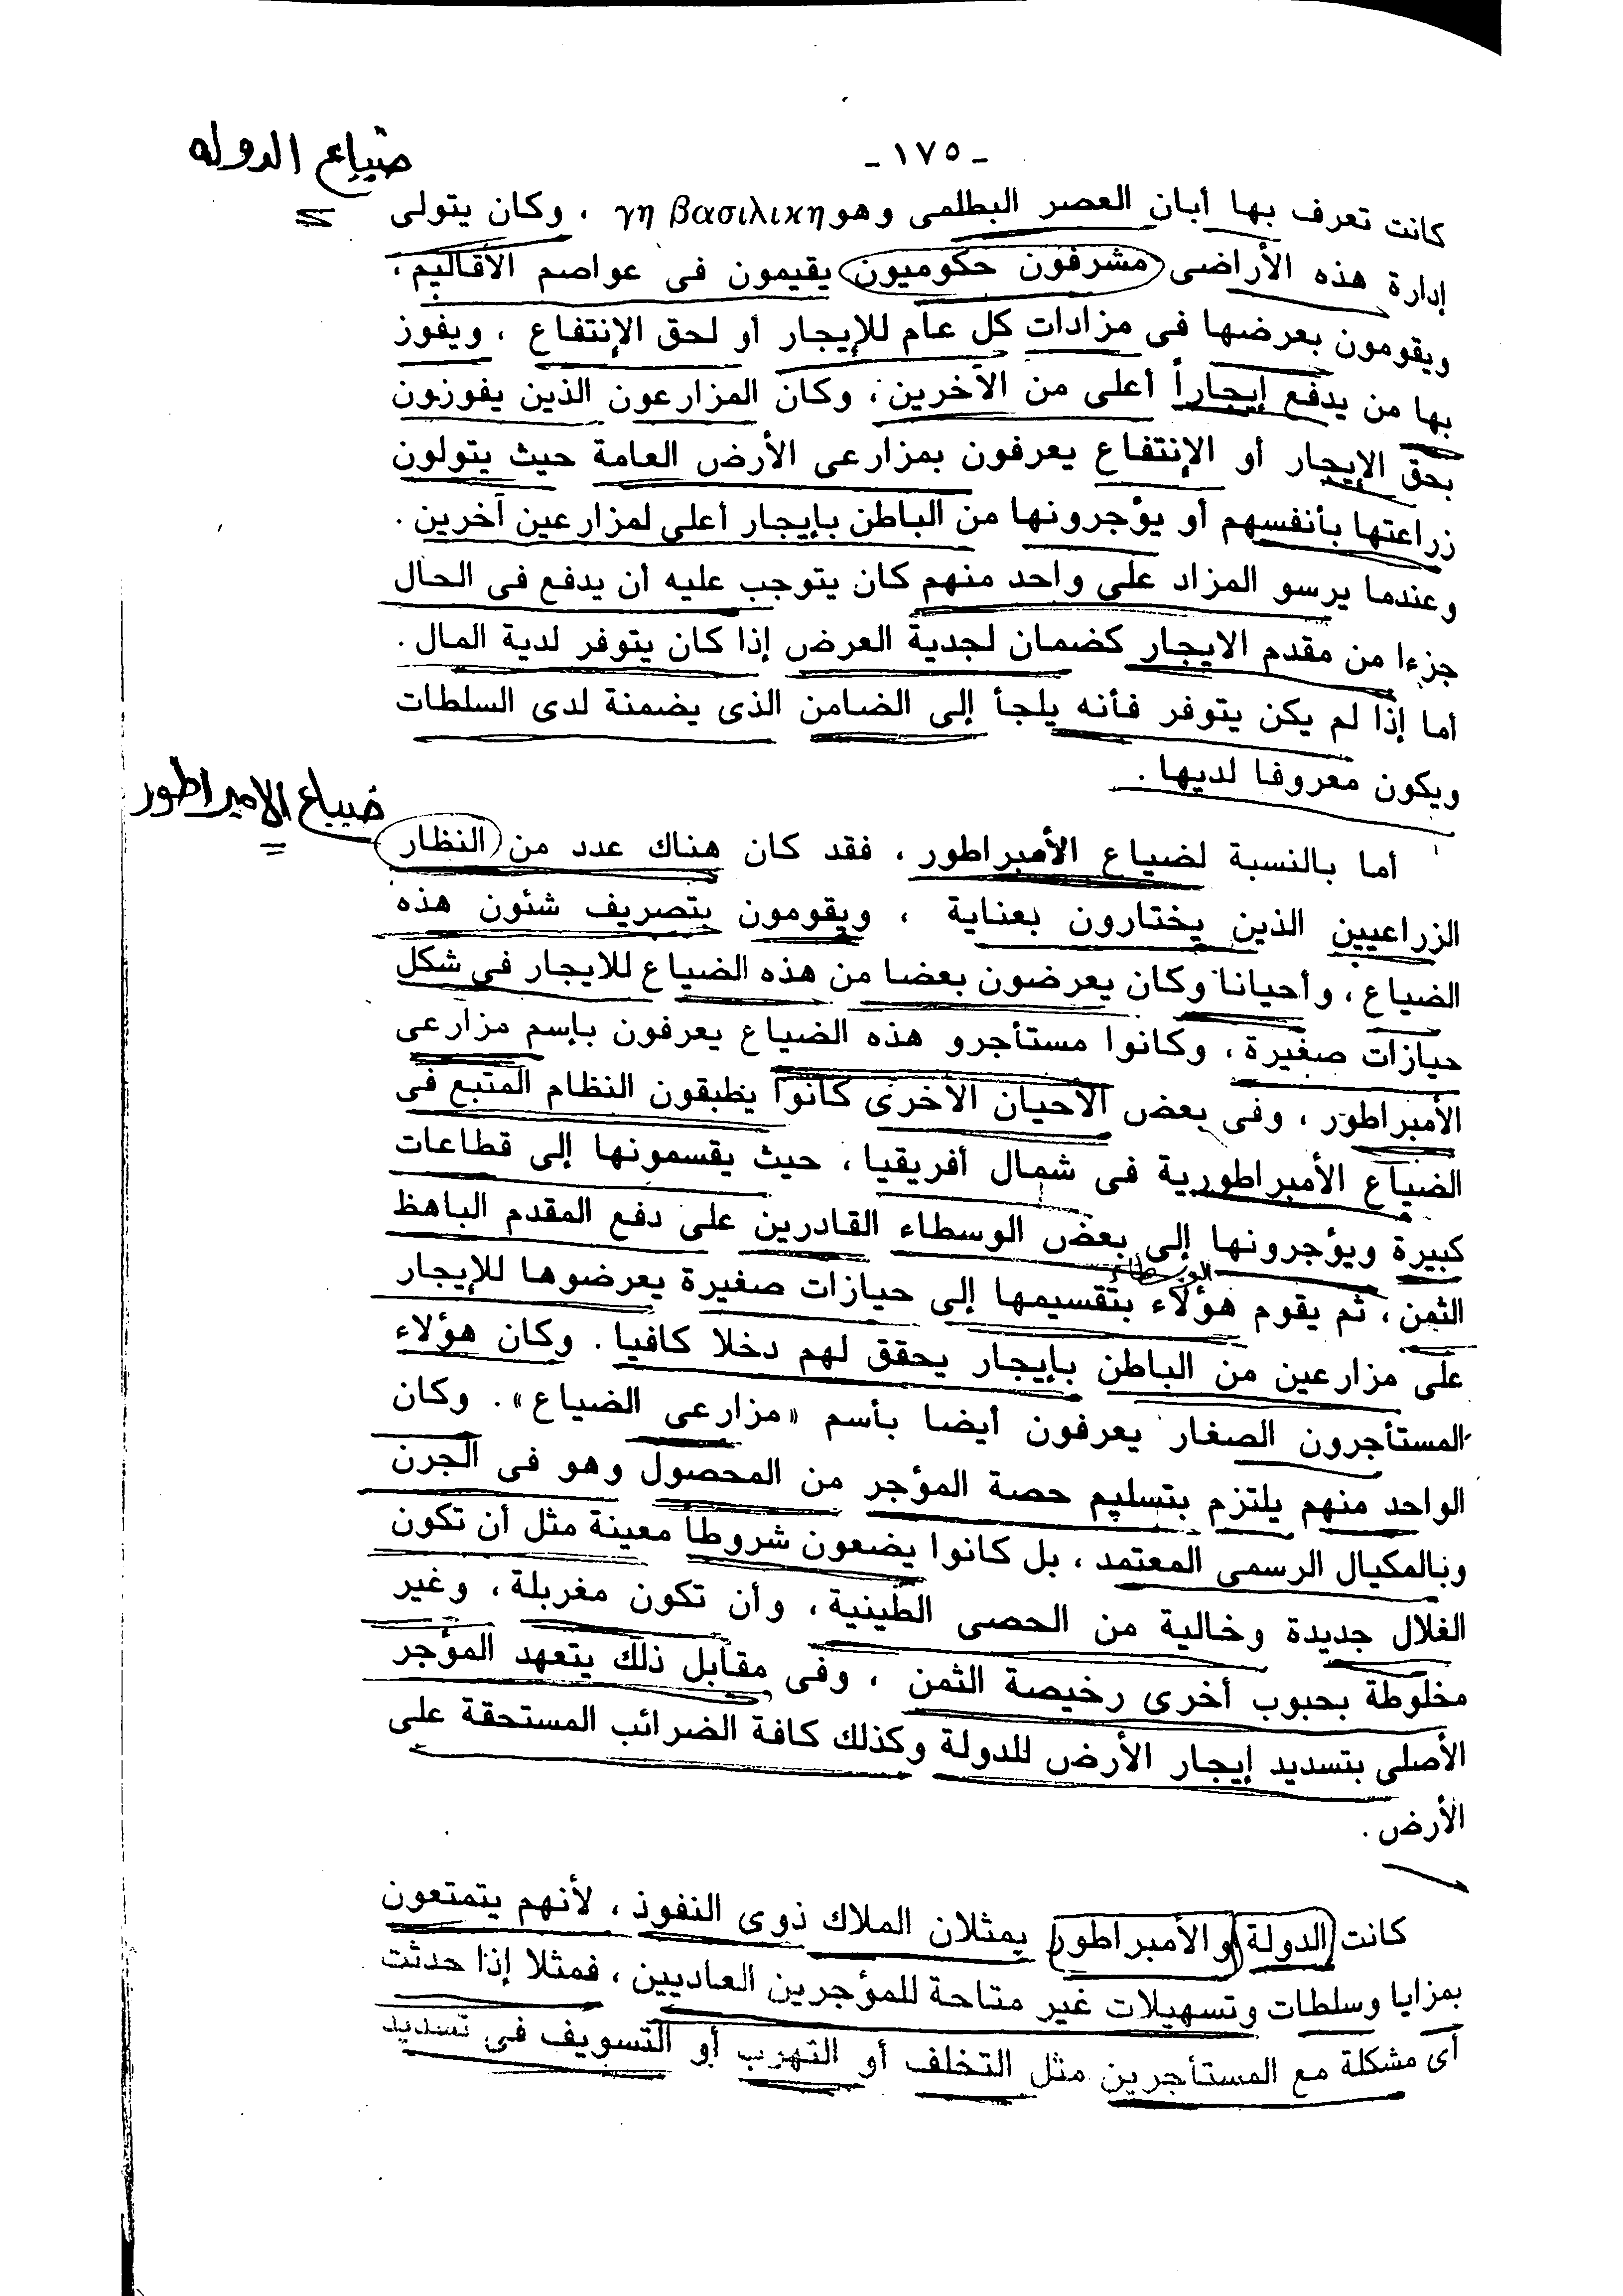 - ١٧٥ -
ضياع الدوله
كانت تعرف بها أبان العصر البطلمى وهو γη βασιλικη ، وكان يتولى
إدارة هذه الأراضى مشرفون حكوميون يقيمون فى عواصم الأقاليم ،
ويقومون بعرضها فى مزادات كل عام للإيجار أو لحق الإنتفاع ، ويفوز
بها من يدفع إيجاراً أعلى من الآخرين ، وكان المزارعون الذين يفوزون
بحق الإيجار أو الإنتفاع يعرفون بمزارعى الأرض العامة حيث يتولون
زراعتها بأنفسهم أو يؤجرونها من الباطن بإيجار أعلى لمزارعين آخرين .
وعندما يرسو المزاد على واحد منهم كان يتوجب عليه أن يدفع فى الحال
جزءا من مقدم الايجار كضمان لجدية العرض إذا كان يتوفر لدية المال .
أما إذا لم يكن يتوفر فأنه يلجأ إلى الضامن الذى يضمنة لدى السلطات
ويكون معروفا لديها .
ضياع الامبراطور
أما بالنسبة لضياع الأمبراطور ، فقد كان هناك عدد من النظار
الزراعيين الذين يختارون بعناية ، ويقومون بتصريف شئون هذه
الضياع ، وأحيانا وكان يعرضون بعضا من هذه الضياع للايجار فى شكل
حيازات صغيرة ، وكانوا مستأجرو هذه الضياع يعرفون بإسم مزارعى
الأمبراطور ، وفى بعض الأحيان الأخرى كانوا يطبقون النظام المتبع فى
الضياع الأمبراطورية فى شمال أفريقيا ، حيث يقسمونها إلى قطاعات
كبيرة ويؤجرونها إلى بعض الوسطاء القادرين على دفع المقدم الباهظ
الوسطاء
الثمن ، ثم يقوم هؤلاء بتقسيمها إلى حيازات صغيرة يعرضوها للإيجار
على مزارعين من الباطن بإيجار يحقق لهم دخلا كافيا . وكان هؤلاء
المستأجرون الصغار يعرفون أيضا بأسم «مزارعى الضياع» . وكان
الواحد منهم يلتزم بتسليم حصة المؤجر من المحصول وهو فى الجرن
وبالمكيال الرسمى المعتمد ، بل كانوا يضعون شروطا معينة مثل أن تكون
الغلال جديدة وخالية من الحصى الطينية ، وأن تكون مغربلة ، وغير
مخلوطة بحبوب أخرى رخيصة الثمن ، وفى مقابل ذلك يتعهد المؤجر
الأصلى بتسديد إيجار الأرض للدولة وكذلك كافة الضرائب المستحقة على
الأرض .
كانت الدولة والأمبراطور يمثلان الملاك ذوى النفوذ ، لأنهم يتمتعون
بمزايا وسلطات وتسهيلات غير متاحة للمؤجرين العاديين ، فمثلا إذا حدثت
أى مشكلة مع المستأجرين مثل التخلف أو التهرب أو التسويف فى تسديد